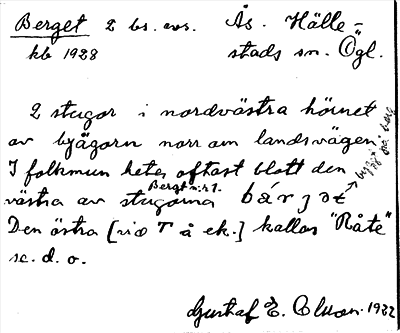 Berget 2 bs. avs. Ås. Hälle-
kb 1928 stads sn. Ögl.
2 stugor i nordvästra hörnet
av byägorn norr om landsvägen
bygg på berg
I folkmun hetes oftast blott den
Bergt n:r 1.
västra av stugorna bárʒət
Den östra [vid T å ek.] kallas "Råte"
sc. d. o.
Gustaf E. Olsson. 1932